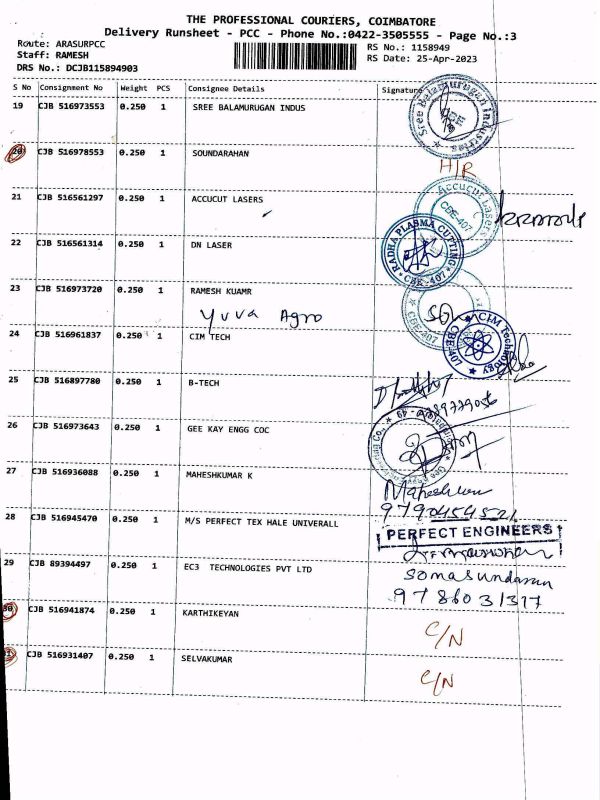 THE PROFESSIONAL COURIERS, COIMBATORE
Delivery Runsheet - PCC - Phone No.:0422-3505555 - Page No.:3
Route: ARASURPCC
Staff: RAMESH
DRS No.: DCJB115894903
RS No.: 1158949
RS Date: 25-Apr-2023
S No Consignment No Weight PCS Consignee Details Signature
19 CJB 516973553 0.250 1 SREE BALAMURUGAN INDUS
Sree Balamurugan Industries
20 CJB 516978553 0.250 1 SOUNDARAHAN
H/R
21 CJB 516561297 0.250 1 ACCUCUT LASERS
Accucut Lasers
CBE-407
22 CJB 516561314 0.250 1 DN LASER
RADHA PLASMA CUTTING
CBE-407
23 CJB 516973720 0.250 1 RAMESH KUAMR
Yuva Agro
CBE-407
24 CJB 516961837 0.250 1 CIM TECH
CIM Technology
25 CJB 516897780 0.250 1 B-TECH
26 CJB 516973643 0.250 1 GEE KAY ENGG COC
27 CJB 516936088 0.250 1 MAHESHKUMAR K
9790454521
28 CJB 516945470 0.250 1 M/S PERFECT TEX HALE UNIVERALL
PERFECT ENGINEERS
29 CJB 89394497 0.250 1 EC3 TECHNOLOGIES PVT LTD
Somasundaram
9786031317
30 CJB 516941874 0.250 1 KARTHIKEYAN
C/N
31 CJB 516931407 0.250 1 SELVAKUMAR
C/N